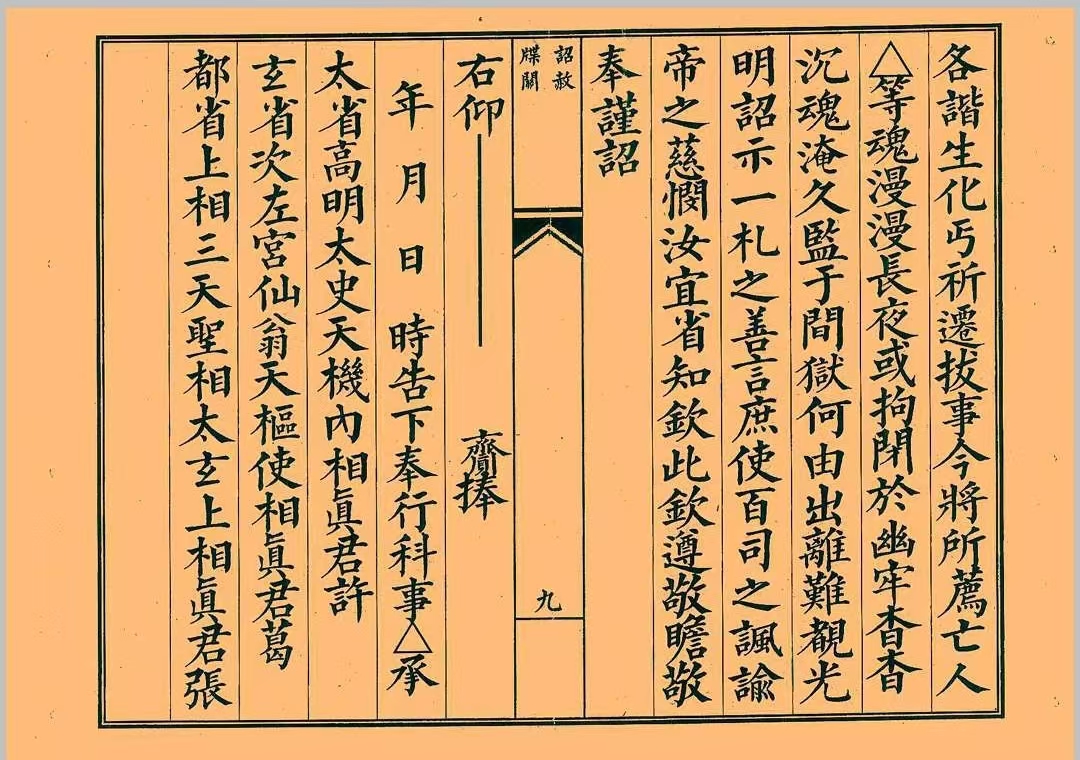 各諧生化丐祈遷拔事今將所薦亡人
△等魂漫漫長夜或拘閉於幽牢杳杳
沉魂淹久監于間獄何由出離難覩光
明詔示一札之善言庶使百司之諷諭
帝之慈憫汝宜省知欽此欽遵敬瞻敬
奉謹詔
詔赦
牒關
九
右仰 齎捧
年 月 日 時告下奉行科事△承
太省高明太史天機內相眞君許
玄省次左宮仙翁天樞使相眞君葛
都省上相三天聖相太玄上相眞君張